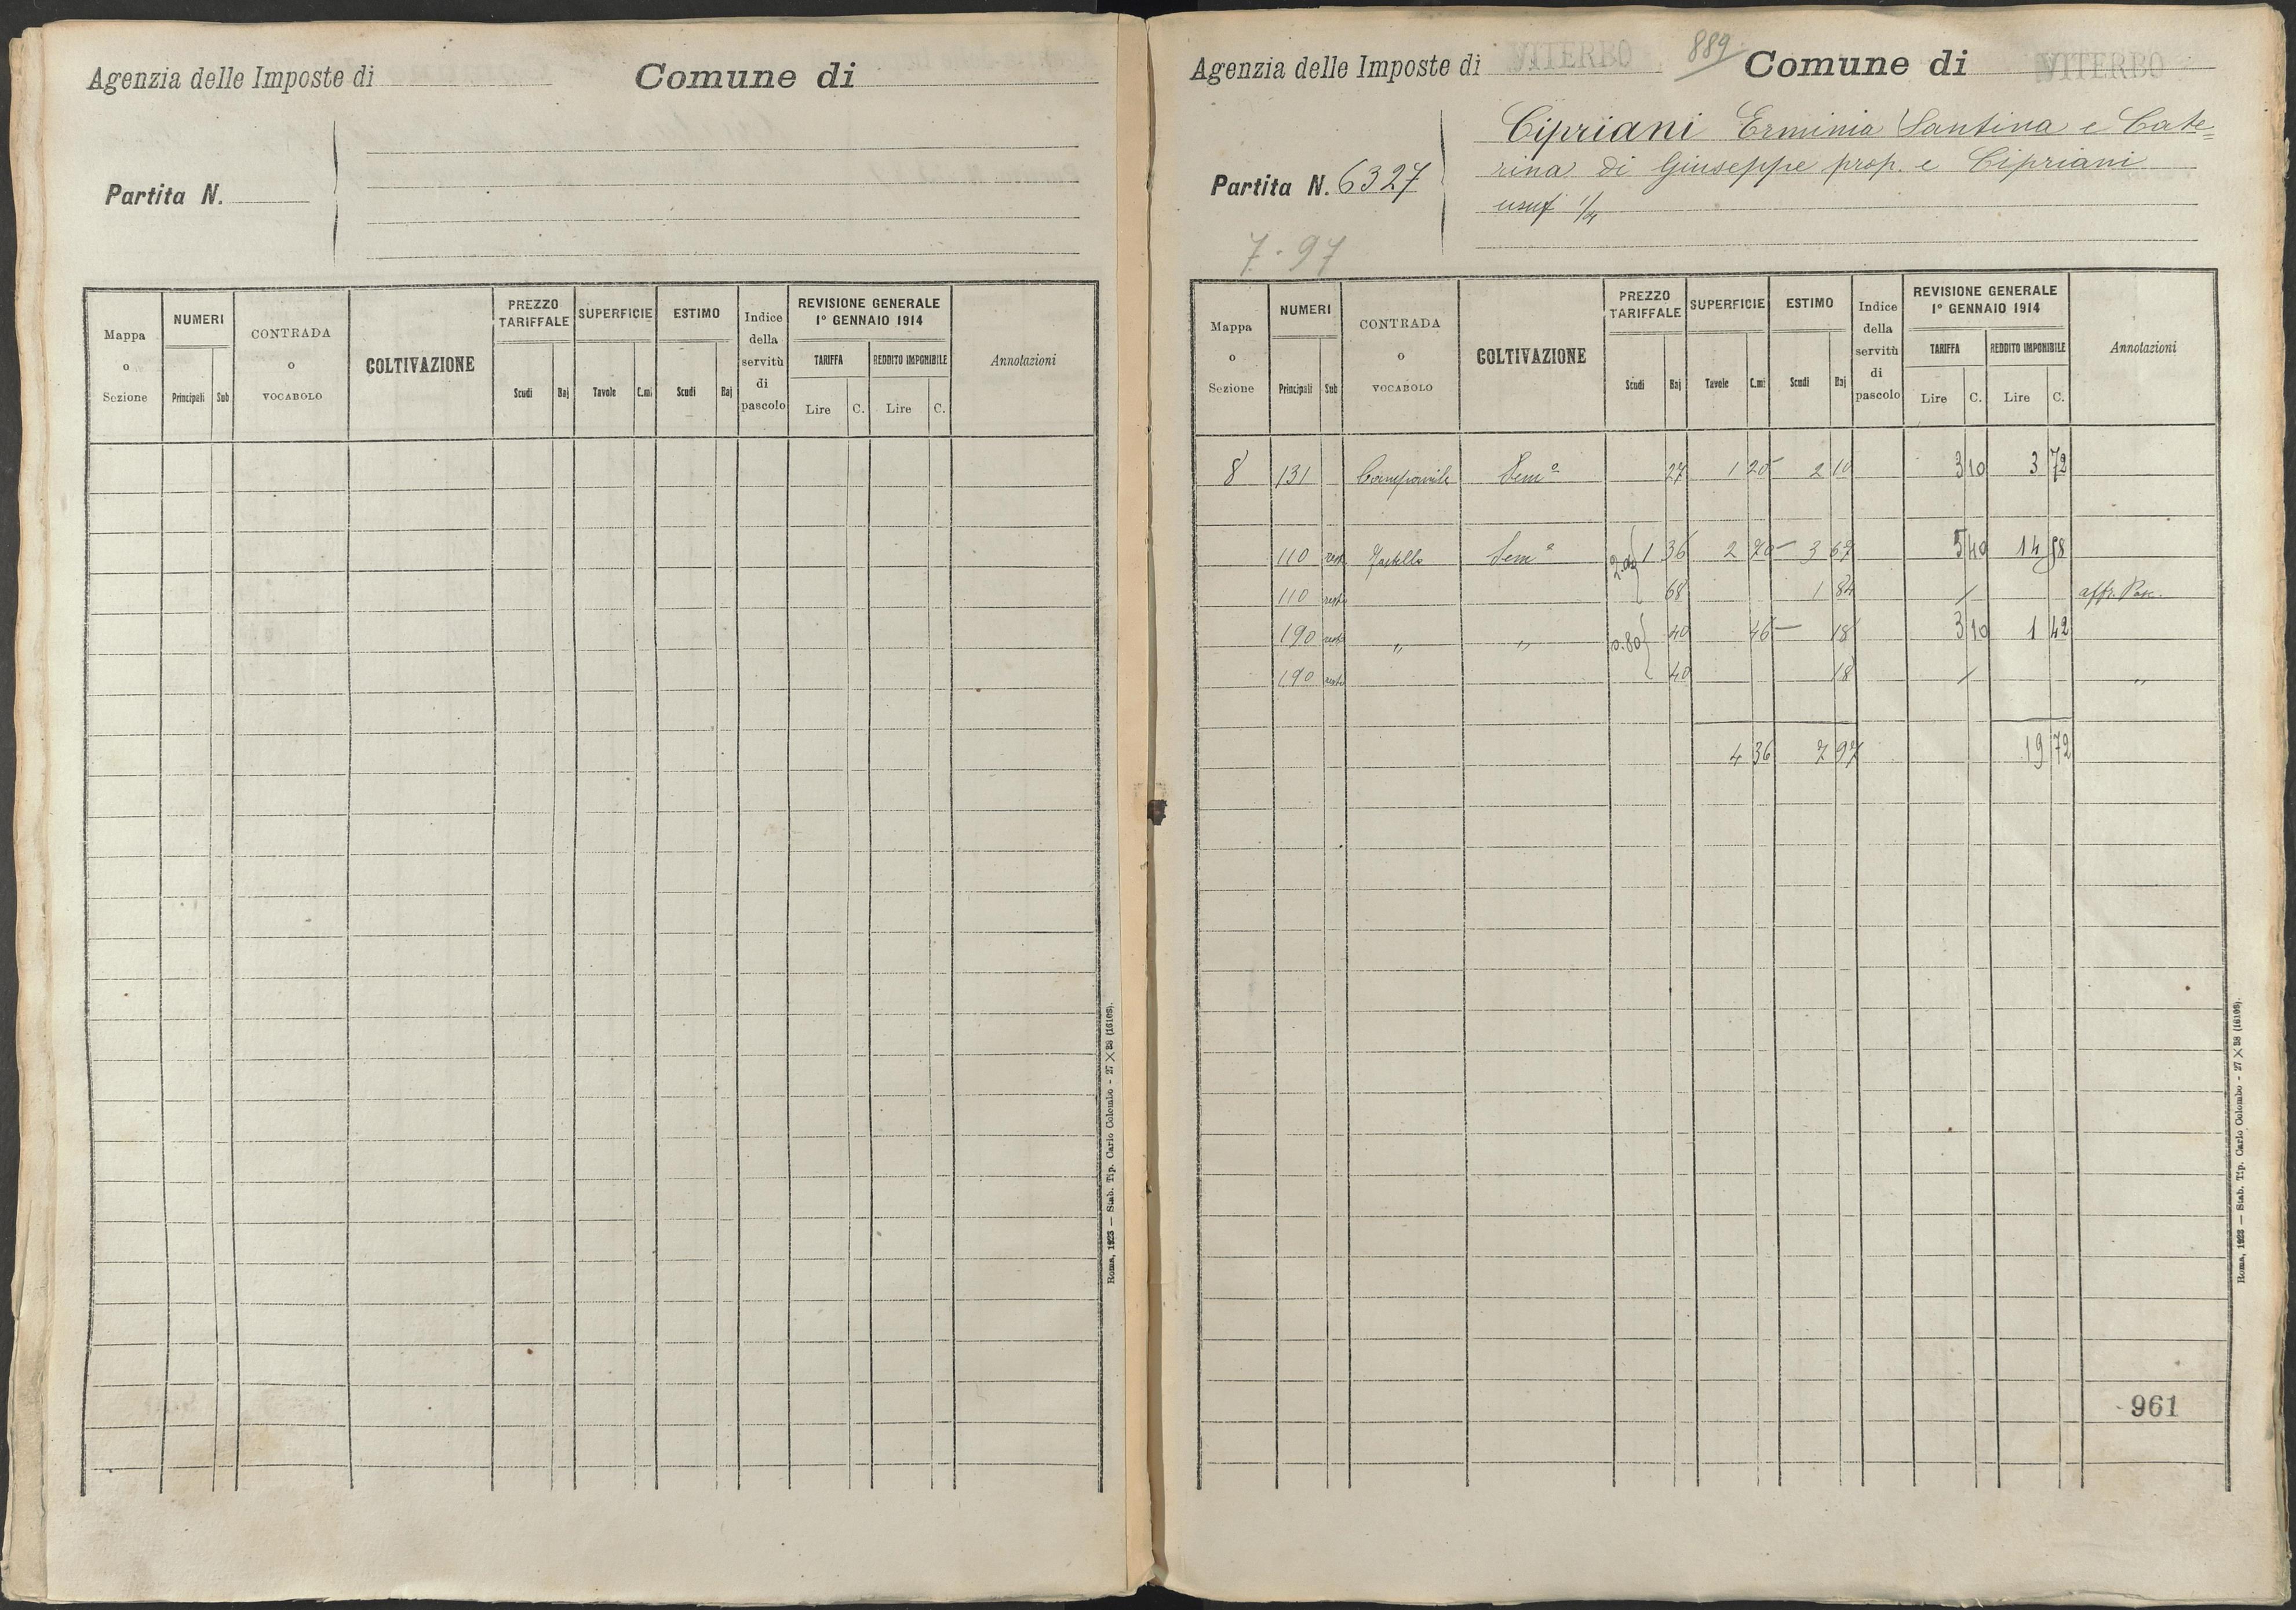 Agenzia delle Imposte di Comune di
Partita N.
Mappa o Sezione NUMERI Principali Sub CONTRADA o VOCABOLO COLTIVAZIONE PREZZO TARIFFALE Scudi Baj SUPERFICIE Tavole C.mi ESTIMO Scudi Baj Indice della servitù di pascolo REVISIONE GENERALE 1° GENNAIO 1914 TARIFFA Lire C. REDDITO IMPONIBILE Lire C. Annotazioni
Roma, 1923 — Stab. Tip. Carlo Colombo - 27 × 38 (16106).
Agenzia delle Imposte di VITERBO 889 Comune di VITERBO
Cipriani Erminia Santina e Cate=
Partita N. 6327 rina di Giuseppe prop. e Cipriani
usuf 1/4
7.97
Mappa o Sezione NUMERI Principali Sub CONTRADA o VOCABOLO COLTIVAZIONE PREZZO TARIFFALE Scudi Baj SUPERFICIE Tavole C.mi ESTIMO Scudi Baj Indice della servitù di pascolo REVISIONE GENERALE 1° GENNAIO 1914 TARIFFA Lire C. REDDITO IMPONIBILE Lire C. Annotazioni
8 131 Sem° 27 1 20 2 10 3 10 3 72
110 rest Sem° 1 36 2 70 3 67 5 40 14 58
110 rest 68 1 84 / affr. Pasc.
190 rest " " 0.80 40 46 18 3 10 1 42
190 rest 40 18 / "
4 36 7 97 19 72
961
Roma, 1923 — Stab. Tip. Carlo Colombo - 27 × 38 (16106).